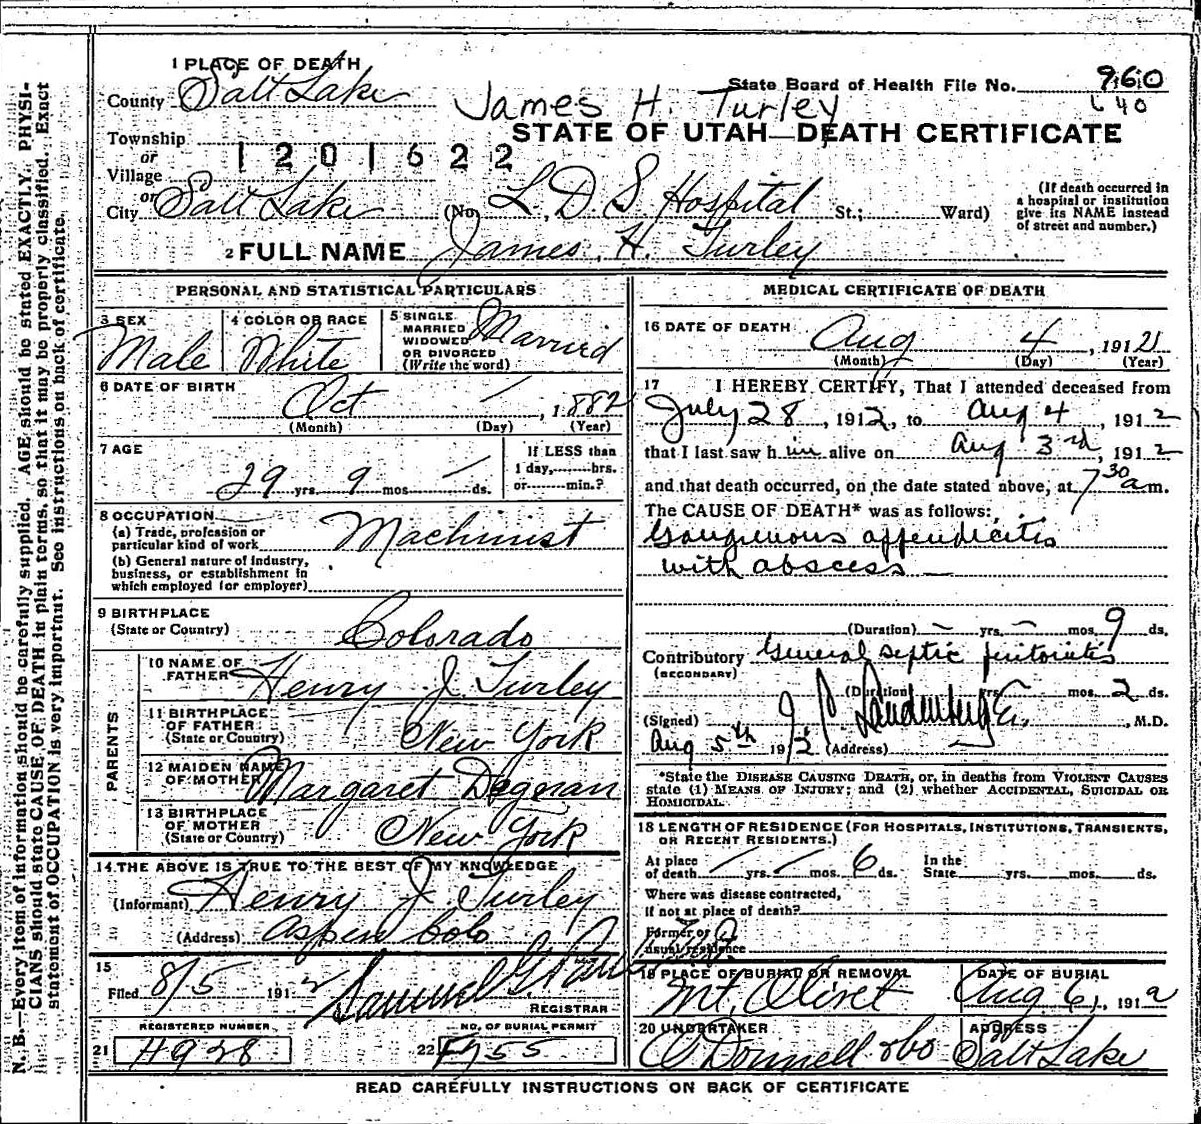 N. B.—Every item of information should be carefully supplied. AGE should be stated EXACTLY. PHYSI-
CIANS should state CAUSE OF DEATH in plain terms, so that it may be properly classified. Exact
statement of OCCUPATION is very important. See instructions on back of certificate.
1 PLACE OF DEATH
County Salt Lake
State Board of Health File No. 960
James H. Turley
640
STATE OF UTAH—DEATH CERTIFICATE
Township
or
1201622
Village
or
City Salt Lake (No. L. D. S Hospital St.; Ward)
(If death occurred in
a hospital or institution
give its NAME instead
of street and number.)
2 FULL NAME James. H. Turley
PERSONAL AND STATISTICAL PARTICULARS
3 SEX
Male
4 COLOR OR RACE
White
5 SINGLE
MARRIED
WIDOWED
OR DIVORCED
(Write the word)
Married
6 DATE OF BIRTH
Oct — , 1882
(Month) (Day) (Year)
7 AGE
29 yrs. 9 mos. — ds.
If LESS than
1 day, hrs.
or min.?
8 OCCUPATION
(a) Trade, profession or
particular kind of work Machinist
(b) General nature of industry,
business, or establishment in
which employed (or employer)
9 BIRTHPLACE
(State or Country) Colorado
PARENTS
10 NAME OF
FATHER Henry J. Turley
11 BIRTHPLACE
OF FATHER
(State or Country) New York
12 MAIDEN NAME
OF MOTHER Margaret Degnan
13 BIRTHPLACE
OF MOTHER
(State or Country) New York
14 THE ABOVE IS TRUE TO THE BEST OF MY KNOWLEDGE
(Informant) Henry J. Turley
(Address) Aspen Colo
15
Filed 8/5 1912 Samuel G. Paul
REGISTRAR
REGISTERED NUMBER
21 H928
NO. OF BURIAL PERMIT
22 F955
MEDICAL CERTIFICATE OF DEATH
16 DATE OF DEATH
Aug 4 , 1912
(Month) (Day) (Year)
17 I HEREBY CERTIFY, That I attended deceased from
July 28, 1912, to Aug 4, 1912
that I last saw h im alive on Aug 3rd, 1912
and that death occurred, on the date stated above, at 7 30 a m.
The CAUSE OF DEATH* was as follows:
Gangrenous appendicitis
with abscess —
(Duration) — yrs. — mos. 9 ds.
Contributory General septic peritonitis
(SECONDARY)
(Duration) yrs. mos. 2 ds.
(Signed) J. C. Landenberger , M.D.
Aug 5th 1912 (Address)
*State the DISEASE CAUSING DEATH, or, in deaths from VIOLENT CAUSES
state (1) MEANS OF INJURY; and (2) whether ACCIDENTAL, SUICIDAL OR
HOMICIDAL.
18 LENGTH OF RESIDENCE (FOR HOSPITALS, INSTITUTIONS, TRANSIENTS,
OR RECENT RESIDENTS.)
At place
of death — yrs. — mos. 6 ds.
In the
State yrs. mos. ds.
Where was disease contracted,
if not at place of death?
Former or
usual residence
19 PLACE OF BURIAL OR REMOVAL
Mt. Olivet
DATE OF BURIAL
Aug 6, 1912
20 UNDERTAKER
O'Donnell & Co
ADDRESS
Salt Lake
READ CAREFULLY INSTRUCTIONS ON BACK OF CERTIFICATE